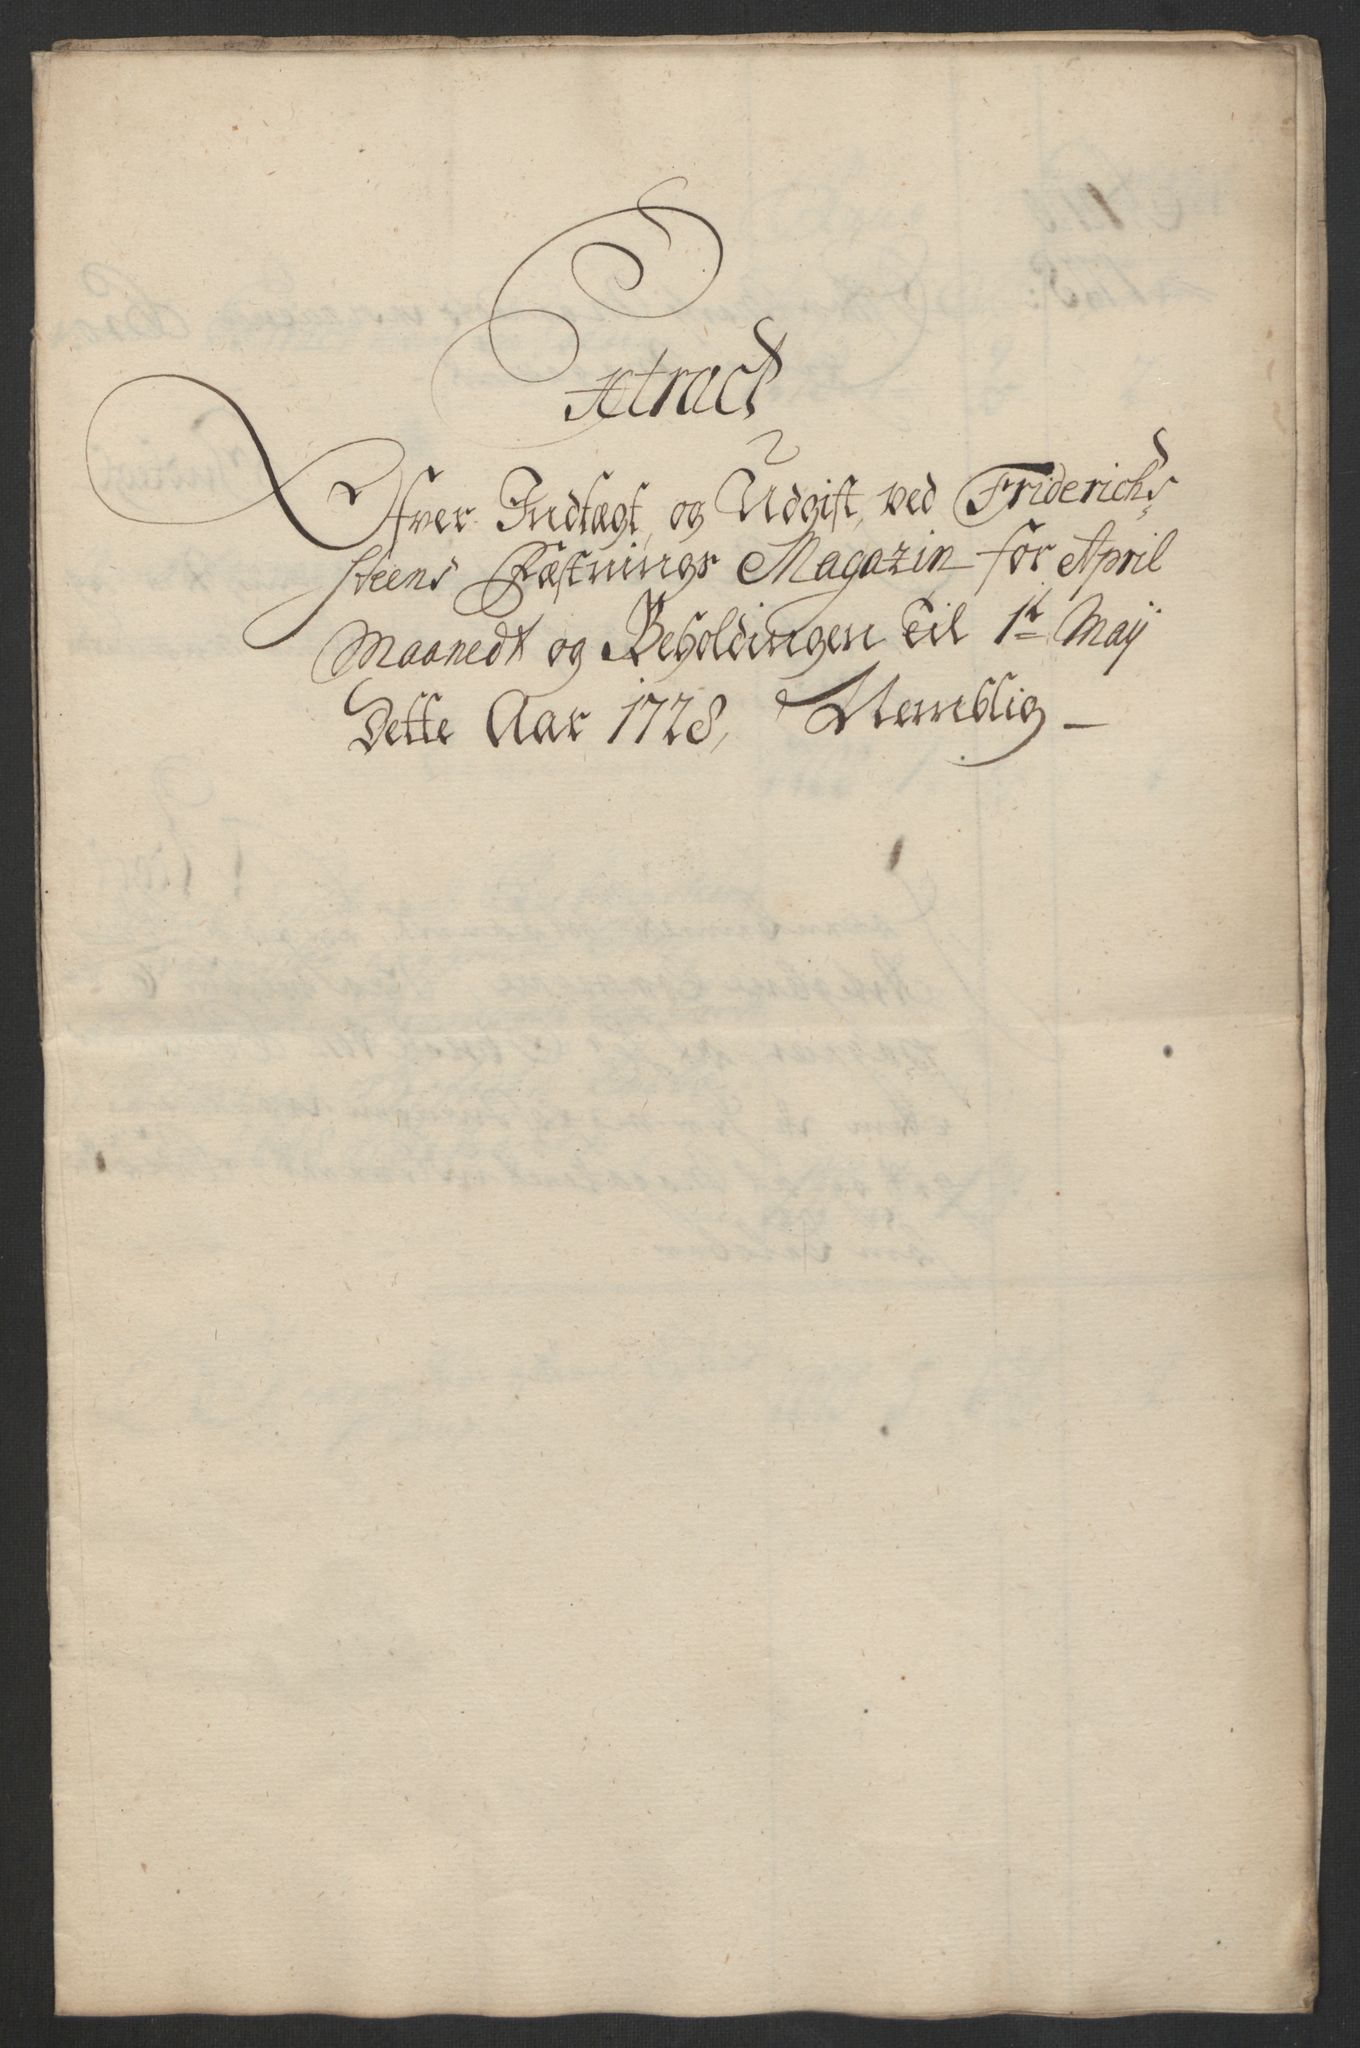 Extract
Ofver Indtægt, og Udgift, ved Friderichs
steens Fæstnings Magazin for April
Maanedt og Beholdingen til 1te Maij
Dette Aar 1728, Nemblig –